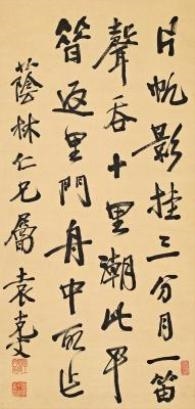 片帆影挂三分月一笛
聲吞十里潮此
返里門舟中所作
蔭林仁兄屬袁克文